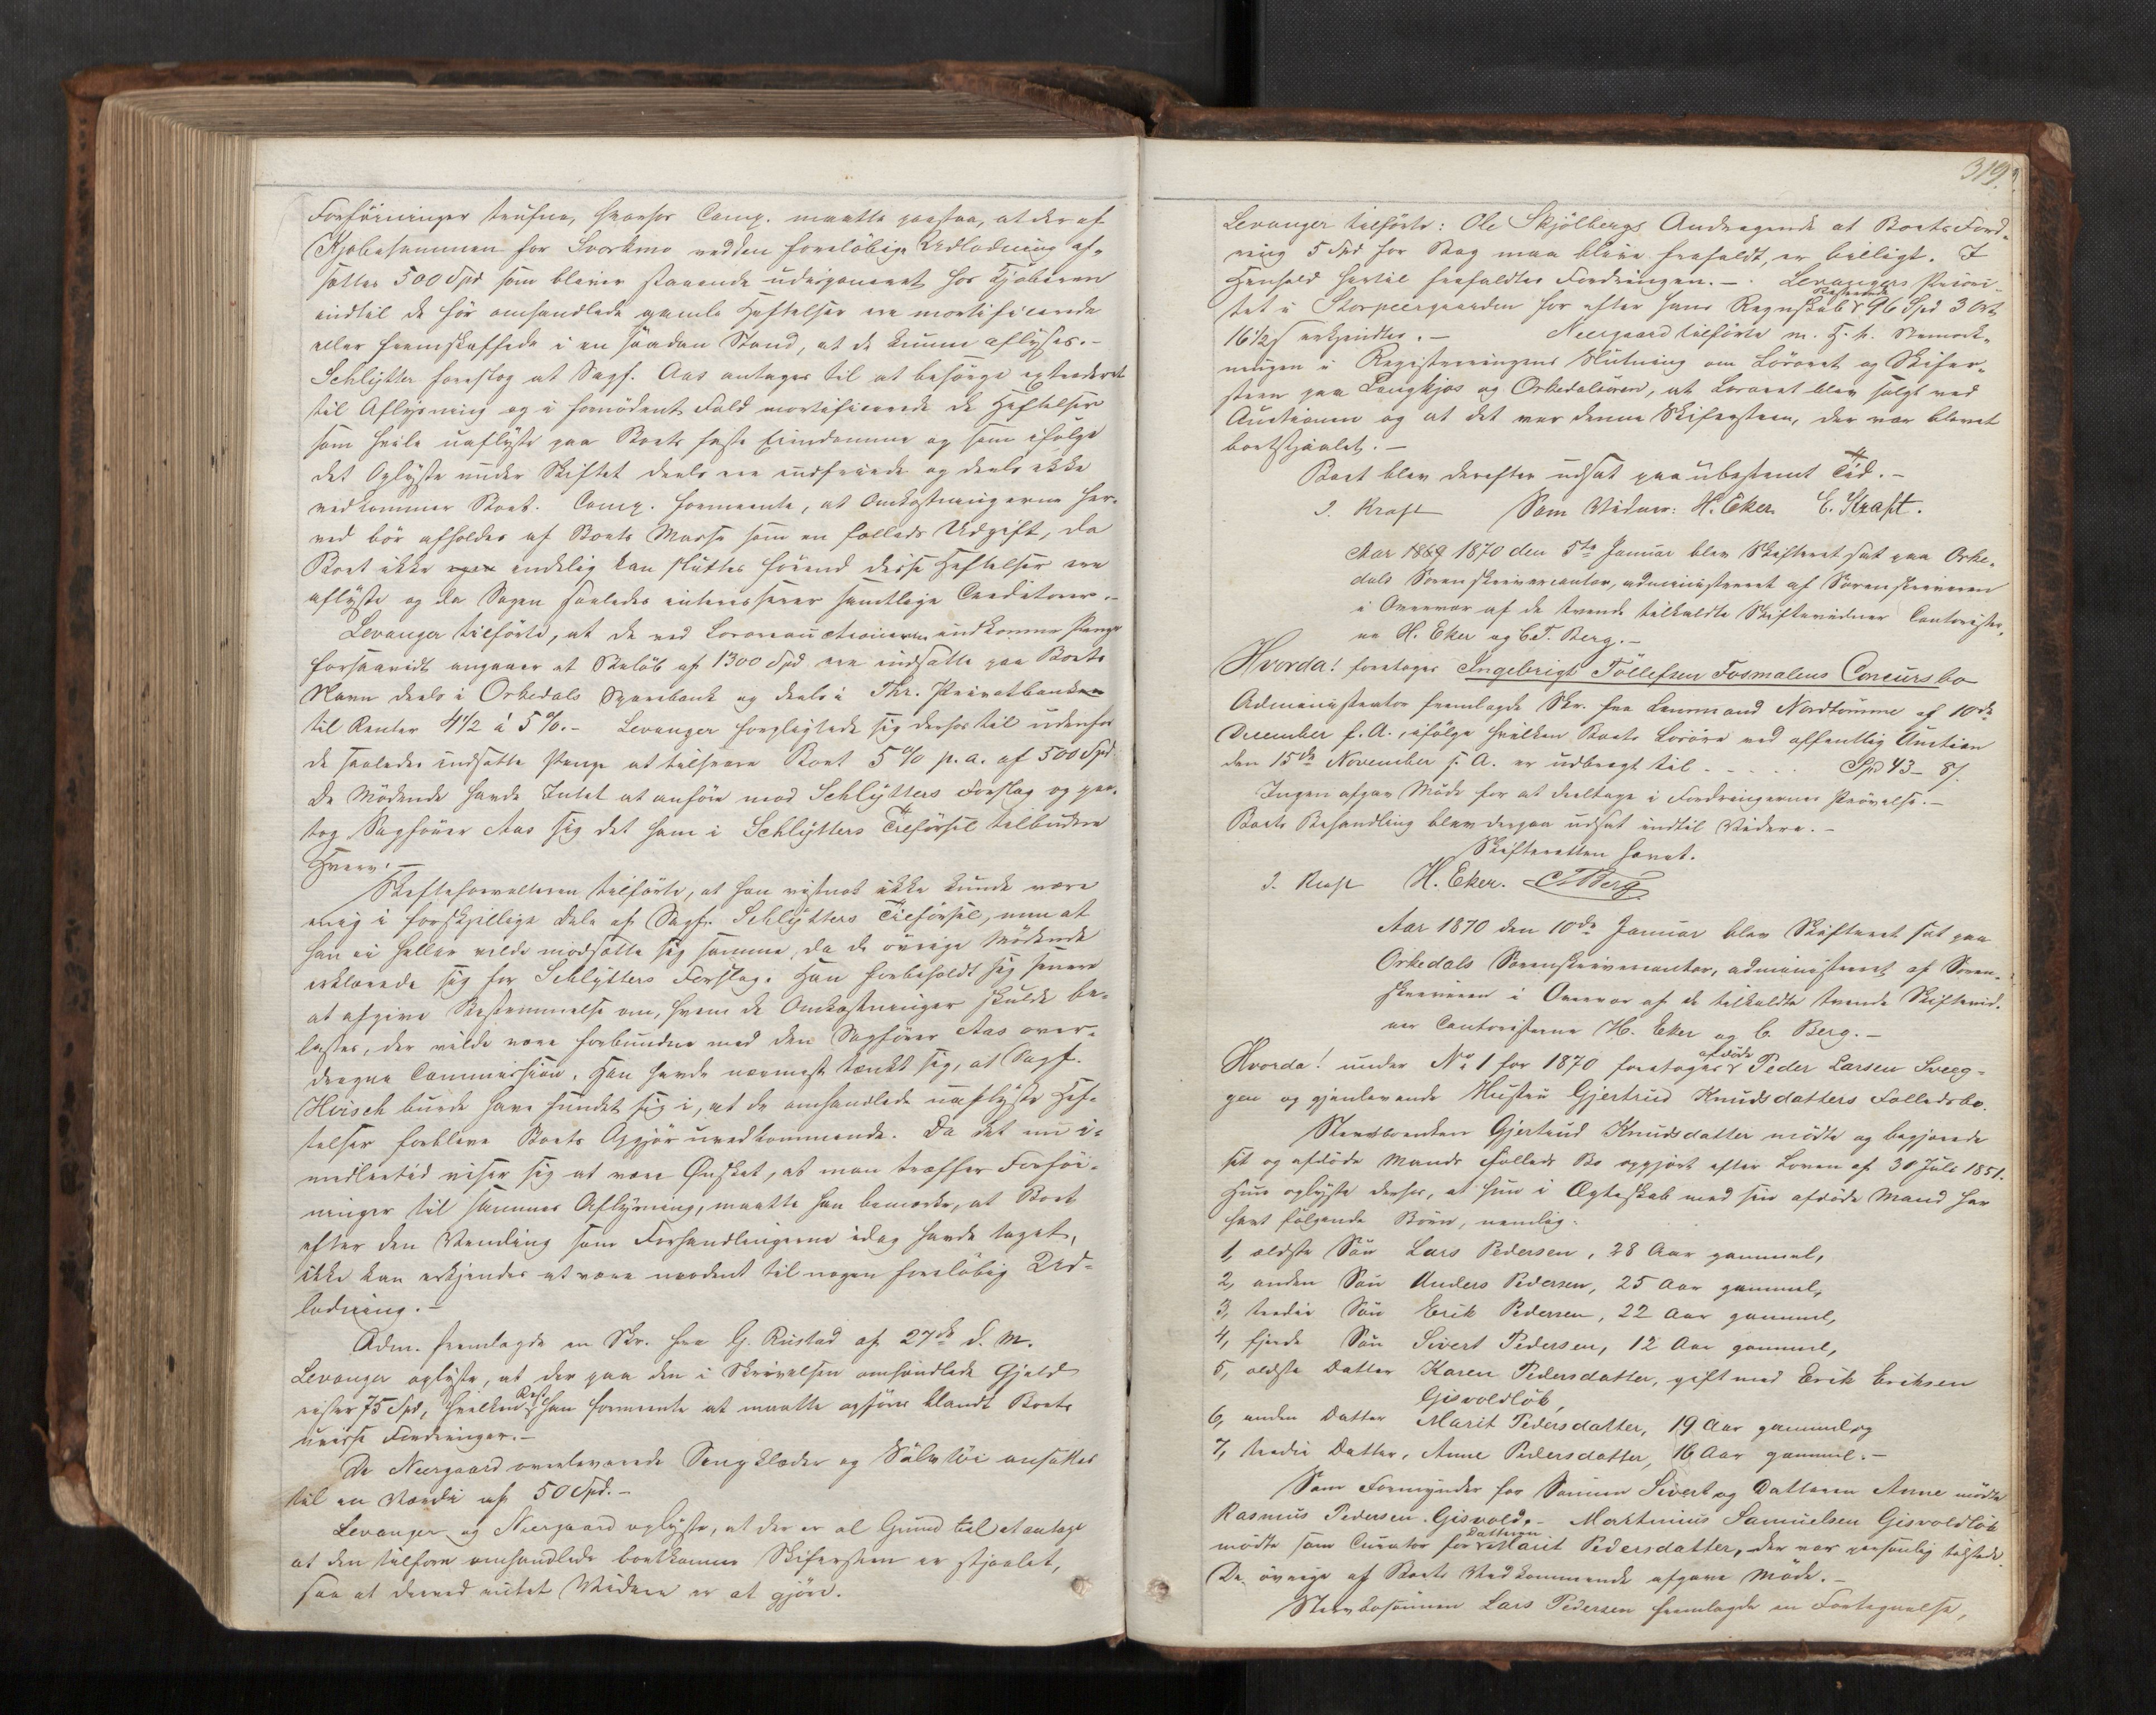 Forføininger trufne, hvorfor Comp. maatte paastaa, at der af
Kjøbesummen for Svorkmo ved den foreløbige Udlodning af-
sættes 500 Spd som bliver staaende udisponeret hos Kjøberen
indtil de før omhandlede gamle Heftelser ere mortificerede
eller fremskaffede i en saadan Stand, at de kunne aflyses.-
Schlytter foreslog at Sagf. Aas antages til at besørge extraderet
til Aflysning og i fornødent Fald mortificerede de Heftelser
som hvile uaflyste paa Boets faste Eiendomme og som ifølge
det Oplyste under Skiftet deels ere indfriede og deels ikke
vedkommer Boet. Comp. formeente, at Omkostningerne her-
ved bør afholdes af Boets Masse som en fælleds Udgift, da
Boet ikke endelig kan sluttes førend disse Heftelser ere
aflyste og da Sagen saaledes interesserer samtlige Creditorer.-
Levanger tilførte, at de ved Løsøreauctionerne indkomne Penge
forsaavidt angaaer et Beløb af 1300 Spd ere indsatte paa Boets
Navn deels i Orkedals Sparebank og deels i Thr. Privatbanken
til Renter 4 1/2 à 5 %.- Levanger forpligtede sig derhos til udenfor
de saaledes indsatte Penge at tilsvare Boet 5 % p. a. af 500 Spd
De Mødende havde Intet at anføre mod Schlytters Forslag og paa-
tog Sagfører Aas sig det ham i Schlytters Tilførsel tilbudne
Hverv.-
Skifteforvalteren tilførte, at han vistnok ikke kunde være
enig i forskjellige Dele af Sagf. Schlytters Tilførsel, men at
han ei heller vilde modsætte sig samme, da de øvrige Mødende
erklærede sig for Schlytters Forslag. Han forbeholdt sig senere
at afgive Bestemmelse om, hvem de Omkostninger skulde be-
lastes, der vilde være forbundne med den Sagfører Aas over-
dragne Commission. Han havde nærmest tænkt sig, at Sagf.
Hirsch burde have fundet sig i, at de omhandlede uaflyste Hef-
telser forbleve Boets Opgjør uvedkommende. Da det nu i-
midlertid viser sig at være Ønsket, at man træffer Forføi-
ninger til sammes Aflysning, maatte han bemærke, at Boet
efter den Vending som Forhandlingerne idag havde taget,
ikke kan erkjendes at være modent til nogen foreløbig Ud-
lodning.-
Adm. fremlagde en Skr. fra G. Rustad af 27de d. M.
Levanger oplyste, at der paa den i Skrivelsen omhandlede Gjeld
rester 75 Spd, hvilken Rest han formeente at maatte opføres blandt Boets
uvisse Fordringer.-
De Neergaard overleverede Sengklæder og Sølvtøi ansættes
til en Værdi af 50 Spd.-
Levanger og Neergaard oplyste, at der er al Grund til at antage
at den tilforn omhandlede bortkomne Skifersteen er stjaalet,
saa at derved intet Videre er at gjøre.
319.
Levanger tilførte: Ole Skjølbergs Andragende at Boets Ford-
ring 5 Spd for Bog maa blive frafaldt, er billigt. I
Henhold hertil frafaldtes Fordringen.- Levangers Priori-
tet i Storpeergaarden for efter hans Regnskab resterende 96 Spd 3 Ort
16 1/2 s erkjendtes.- Neergaard tilførte m. H. t. Bemærk-
ningen i Registreringens Slutning om Løsøret og Skifer-
steen paa Langkjøs og Orkedalsøren, at Løsøret blev solgt ved
Auctionen og at det var denne Skifersteen, der var blevet
bortstjaalet.-
Boet blev derefter udsat paa ubestemt Tid.-
J. Kraft Som Vidner: H. Eker. E. Kraft.
Aar 1869 1870 den 5te Januar blev Skifteret sat paa Orke-
dals Sorenskrivercontor, administreret af Sorenskriveren
i Overvær af de tvende tilkaldte Skiftevidner Contorister-
ne H. Eker og C. T. Berg.-
Hvorda! foretoges Ingebrigt Tøllefsen Fosmalens Concursbo
Administrator fremlagde Skr. fra Lensmand Nordtømme af 10de
December f. A., ifølge hvilken Boets Løsøre ved offentlig Auction
den 15de November f. A. er udbragt til - - - - - Spd 43 - 8 s.
Ingen afgav Møde for at deeltage i Fordringernes Prøvelse.-
Boets Behandling blev derpaa udsat indtil Videre.-
Skifteretten hævet.
J. Kraft H. Eker. C. T. Berg
Aar 1870 den 10de Januar blev Skifteret sat paa
Orkedals Sorenskrivercontor, administreret af Soren-
skriveren i Overvær af de tilkaldte tvende Skiftevid-
ner Contoristerne H. Eker og C. Berg.-
Hvorda! under No 1 for 1870 foretoges afdøde Peder Larsen Sveeg-
gen og gjenlevende Hustru Gjertrud Knudsdatters Fælledsbo.
Stervboenken Gjertrud Knudsdatter mødte og begjærede
sit og afdøde Mands Fælleds Bo opgjort efter Loven af 30 Juli 1851.
Hun oplyste derhos, at hun i Ægteskab med sin afdøde Mand har
havt følgende Børn, nemlig:
1, ældste Søn Lars Pedersen, 28 Aar gammel,
2, anden Søn Anders Pedersen, 25 Aar gammel,
3, tredie Søn Erik Pedersen, 22 Aar gammel,
4, fjerde Søn Sivert Pedersen, 12 Aar gammel,
5, ældste Datter Karen Pedersdatter, gift med Erik Eriksen
Gisvoldløk,
6, anden Datter Marit Pedersdatter, 19 Aar gammel og
7, tredie Datter, Anne Pedersdatter, 16 Aar gammel.-
Som Formynder for Sønnen Sivert og Datteren Anne mødte
Rasmus Pedersen Gisvold.- Marthinus Samuelsen Gisvoldløk
mødte som Curator for Datteren Marit Pedersdatter, der var personlig tilstede.
De øvrige af Boets Vedkommende afgave Møde.-
Stervbosønnen Lars Pedersen fremlagde en Fortegnelse,